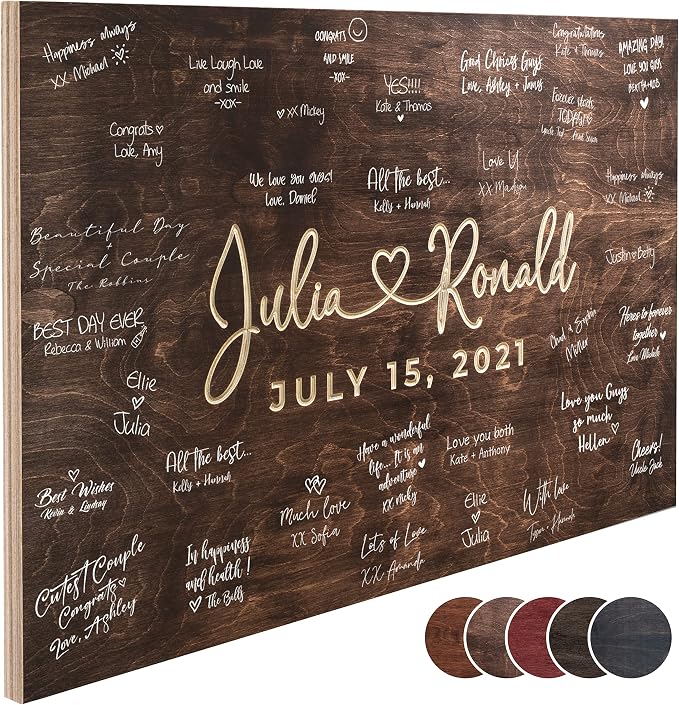 Happiness always
XX Michael
Live Laugh Love
and smile
-XOX-
CONGRATS
AND SMILE
-XOX-
YES!!!!
Kate & Thomas
Good Choices Guys
Love, Ashley + James
Congratulations
Kate + Thomas
AMAZING DAY!
LOVE YOU GUYS
Congrats
Love, Amy
XX Mickey
Forever starts
TODAY
We love you guys!
Love, Daniel
All the best...
Kelly + Hannah
Love U
XX Madison
Happiness always
XX Michael
Beautiful Day
+
Special Couple
The Robbins
Julia Ronald
JULY 15, 2021
Justin Betty
BEST DAY EVER
Rebecca & William
Chad & Sophia
Miller
Heres to forever
together
Love Michele
Ellie
Julia
Love you Guys
so much
Hellen
All the best...
Kelly + Hannah
Have a wonderful
life... It is an
adventure
XX Micky
Love you both
Kate + Anthony
Cheers!
Uncle Jack
Best Wishes
Kevin & Lindsay
Much love
XX Sofia
Ellie
Julia
With love
Hannah
Cutest Couple
Congrats
Love, Ashley
In happiness
and health!
The Bells
Lots of Love
XX Amanda